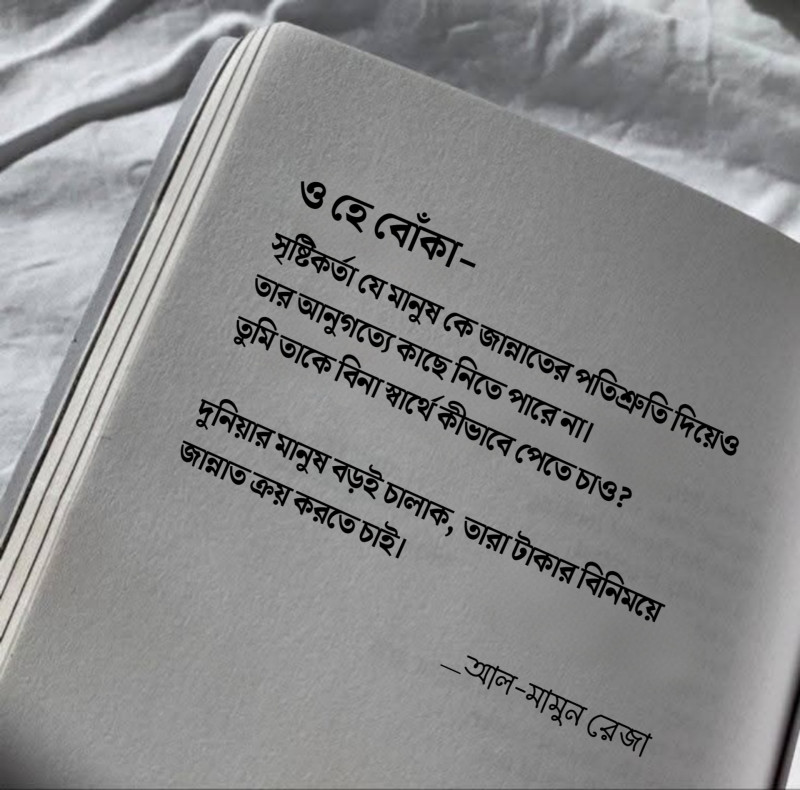 ও হে বোঁকা-
সৃষ্টিকর্তা যে মানুষ কে জান্নাতের পতিশ্রুতি দিয়েও
তার আনুগত্যে কাছে নিতে পারে না।
তুমি তাকে বিনা স্বার্থে কীভাবে পেতে চাও?
দুনিয়ার মানুষ বড়ই চালাক, তারা টাকার বিনিময়ে
জান্নাত ক্রয় করতে চাই।
_আল-মামুন রেজা